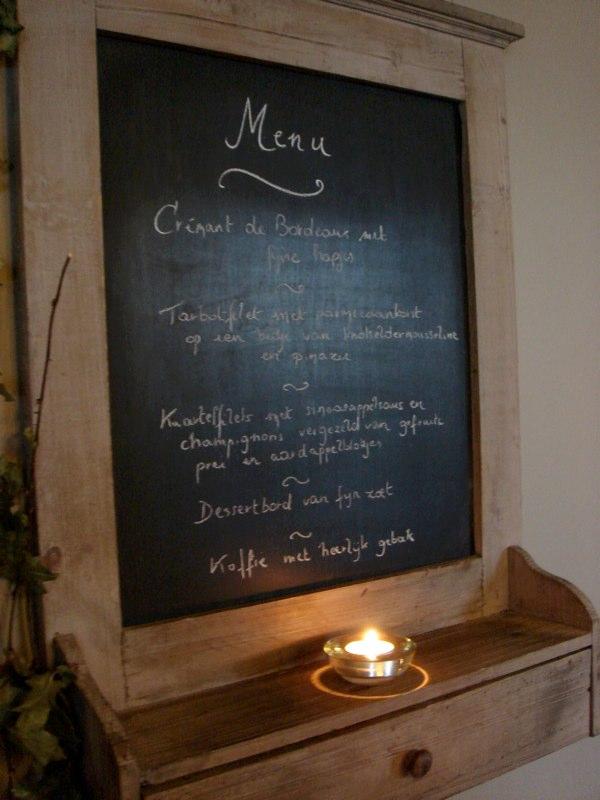 Menu
Crémant de Bordeaux met
fijne hapjes
~
Tarbotfilet met parmezaankorst
op een bedje van knolseldermousseline
en spinazie
~
Kwartelfilets met sinaasappelsaus en
champignons vergezeld van gefruite
prei en aardappelblokjes
~
Dessertbord van fijn zoet
~
Koffie met heerlijk gebak